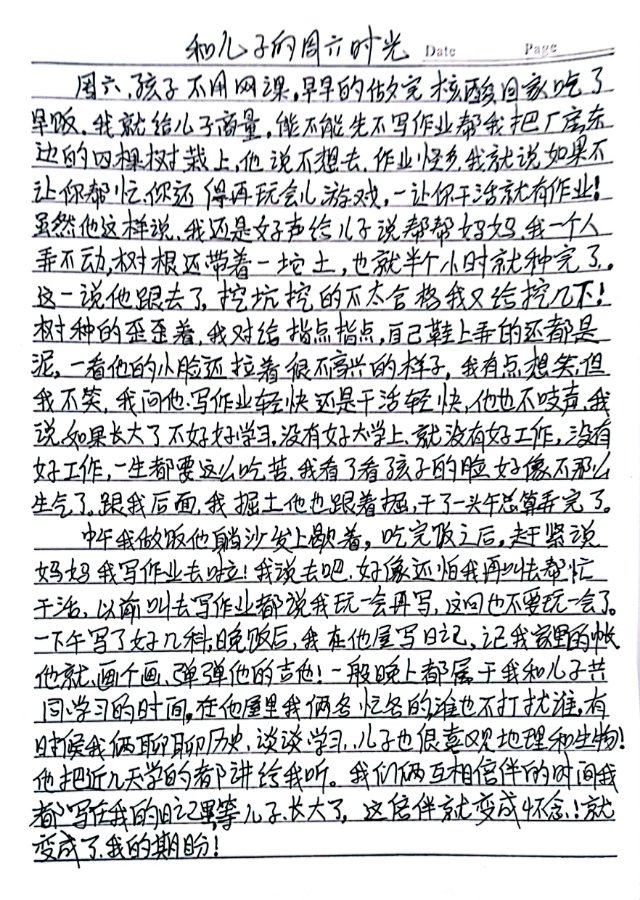 和儿子的周六时光 Date Page
周六,孩子不用网课,早早的做完核酸回家吃了
早饭,我就给儿子商量,能不能先不写作业帮我把厂房东
边的四棵树栽上,他说不想去,作业怪多,我就说如果不
让你帮忙,你还得再玩会儿游戏,一让你干活就有作业!
虽然他这样说,我还是好声给儿子说帮帮妈妈,我一个人
弄不动,树根还带着一坨土,也就半个小时就种完了。
这一说他跟去了,挖坑挖的不太合格我又给挖几下!
树种的歪歪着,我对给指点指点,自己鞋上弄的还都是
泥,一看他的小脸还拉着很不高兴的样子,我有点想笑,但
我不笑,我问他:写作业轻快还是干活轻快,他也不吱声,我
说,如果长大了不好好学习,没有好大学上,就没有好工作,没有
好工作,一生都要这么吃苦,我看了看孩子的脸好像不那么
生气了,跟我后面,我掘土他也跟着掘,干了一头午总算弄完了。
中午我做饭他躺沙发上歇着,吃完饭之后,赶紧说
妈妈我写作业去啦!我说去吧,好像还怕我再叫去帮忙
干活,以前叫去写作业都说我玩一会再写,这回也不要玩一会了。
一下午写了好几科,晚饭后,我在他屋写日记,记我家里的帐
他就画个画、弹弹他的吉他!一般晚上都属于我和儿子共
同学习的时间,在他屋里我俩各忙各的,谁也不打扰谁,有
时候我俩聊聊历史,谈谈学习,儿子也很喜欢地理和生物!
他把近几天学的都讲给我听。我们俩互相陪伴的时间我
都写在我的日记里,等儿子长大了,这陪伴就变成怀念!就
变成了我的期盼!